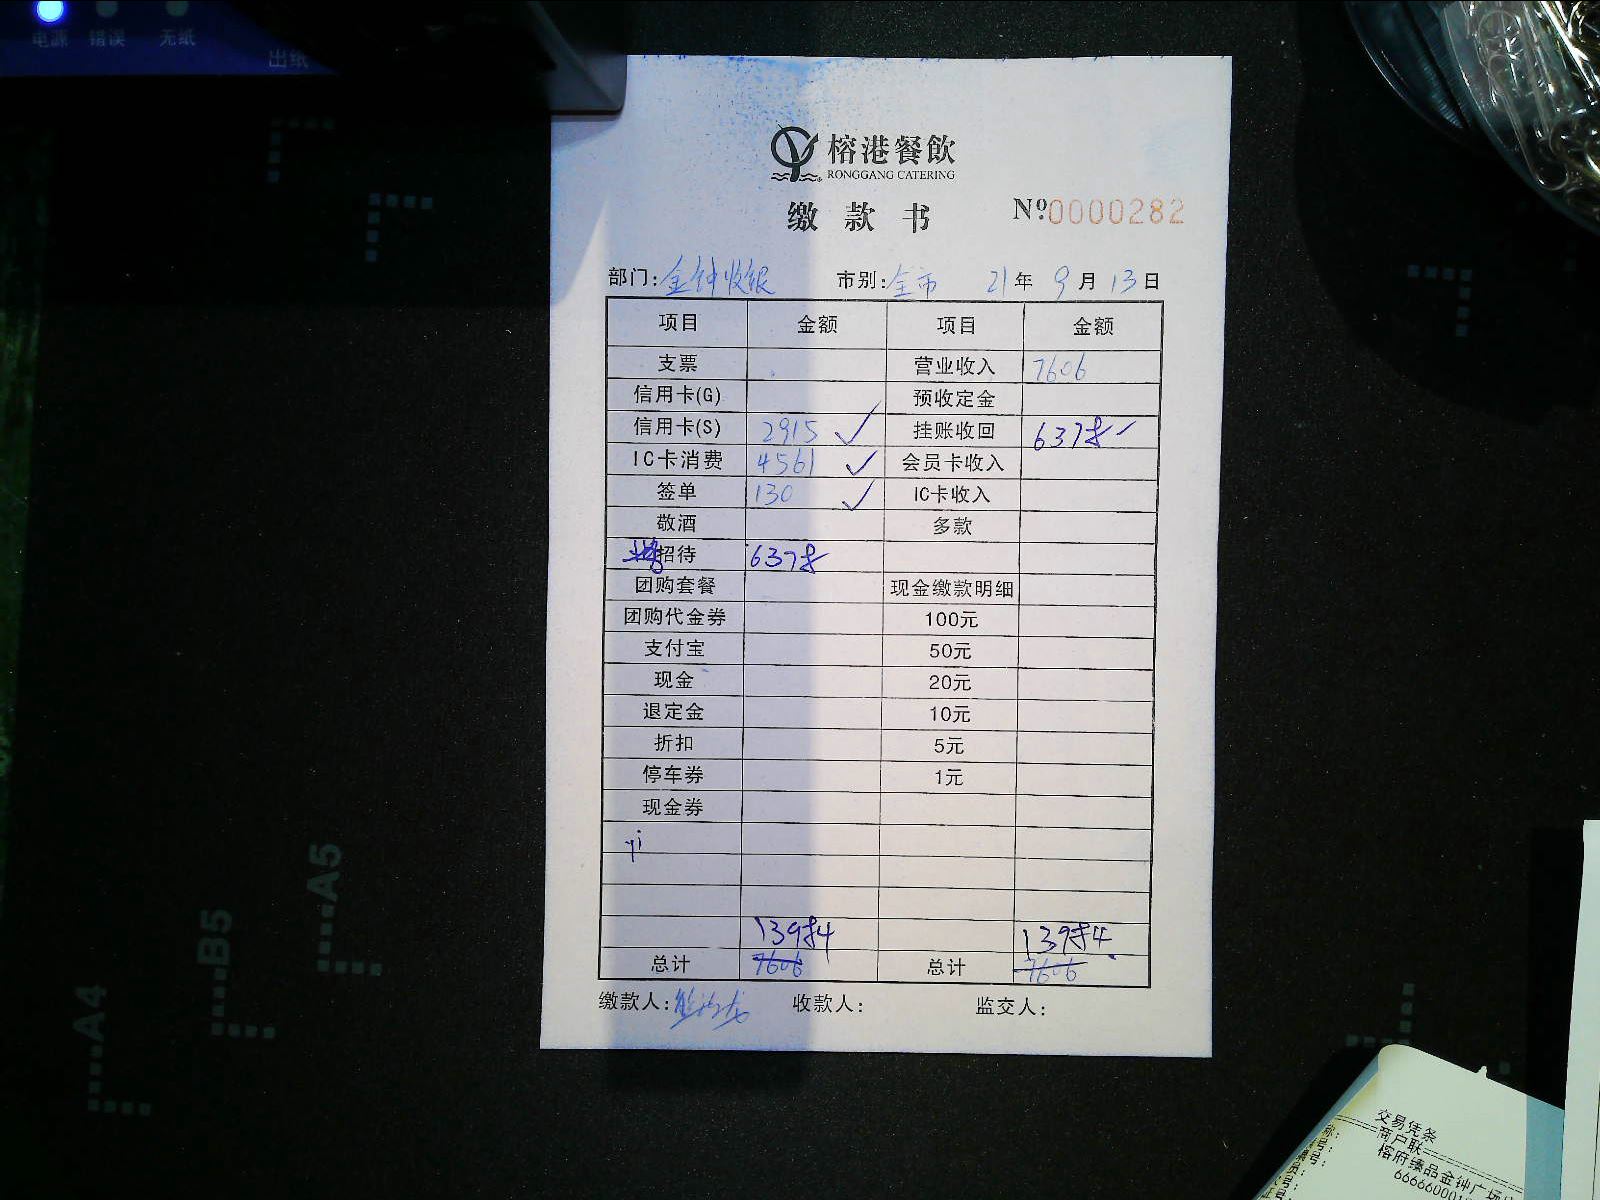 电源 错误 无纸
出纸
榕港餐飲
RONGGANG CATERING
缴款书
Nº0000282
部门:金钟收银 市别:全市 21年9月13日
项目 金额 项目 金额
支票 营业收入 7606
信用卡(G) 预收定金
信用卡(S) 2915 挂账收回 6378
IC卡消费 4561 会员卡收入
签单 130 IC卡收入
敬酒 多款
招待 6378
团购套餐 现金缴款明细
团购代金券 100元
支付宝 50元
现金 20元
退定金 10元
折扣 5元
停车券 1元
现金券
yi
13984 13984
总计 7606 总计 7606
缴款人: 收款人: 监交人:
A5
B5
A4
交易凭条
商户联
榕府臻品金钟广场
6666000